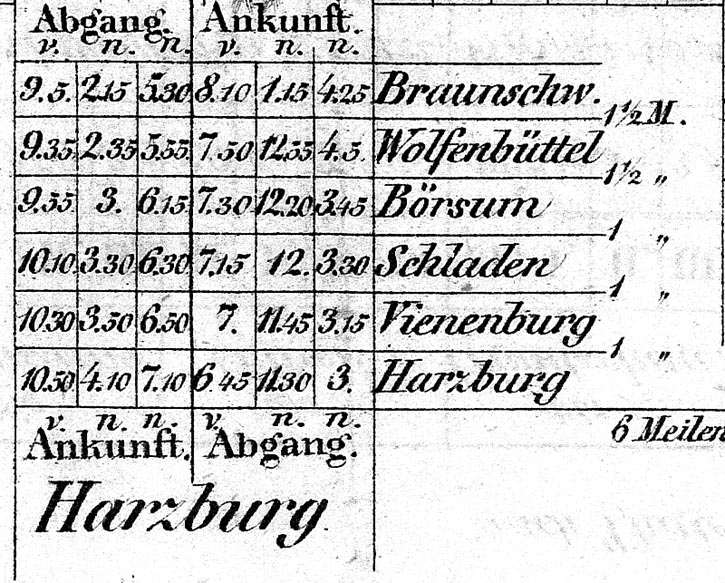 Abgang. Ankunft.
v. n. n. v. n. n.
9.5. 2.15 5.30 8.10 1.15 4.25 Braunschw.
1½ M.
9.35 2.35 5.55 7.50 12.55 4.5. Wolfenbüttel
1½ „
9.55 3. 6.15 7.30 12.20 3.45 Börsum
1 „
10.10 3.30 6.30 7.15 12. 3.30 Schladen
1 „
10.30 3.50 6.50 7. 11.45 3.15 Vienenburg
1 „
10.50 4.10 7.10 6.45 11.30 3. Harzburg
v. n. n. v. n. n.
6 Meilen
Ankunft. Abgang.
Harzburg